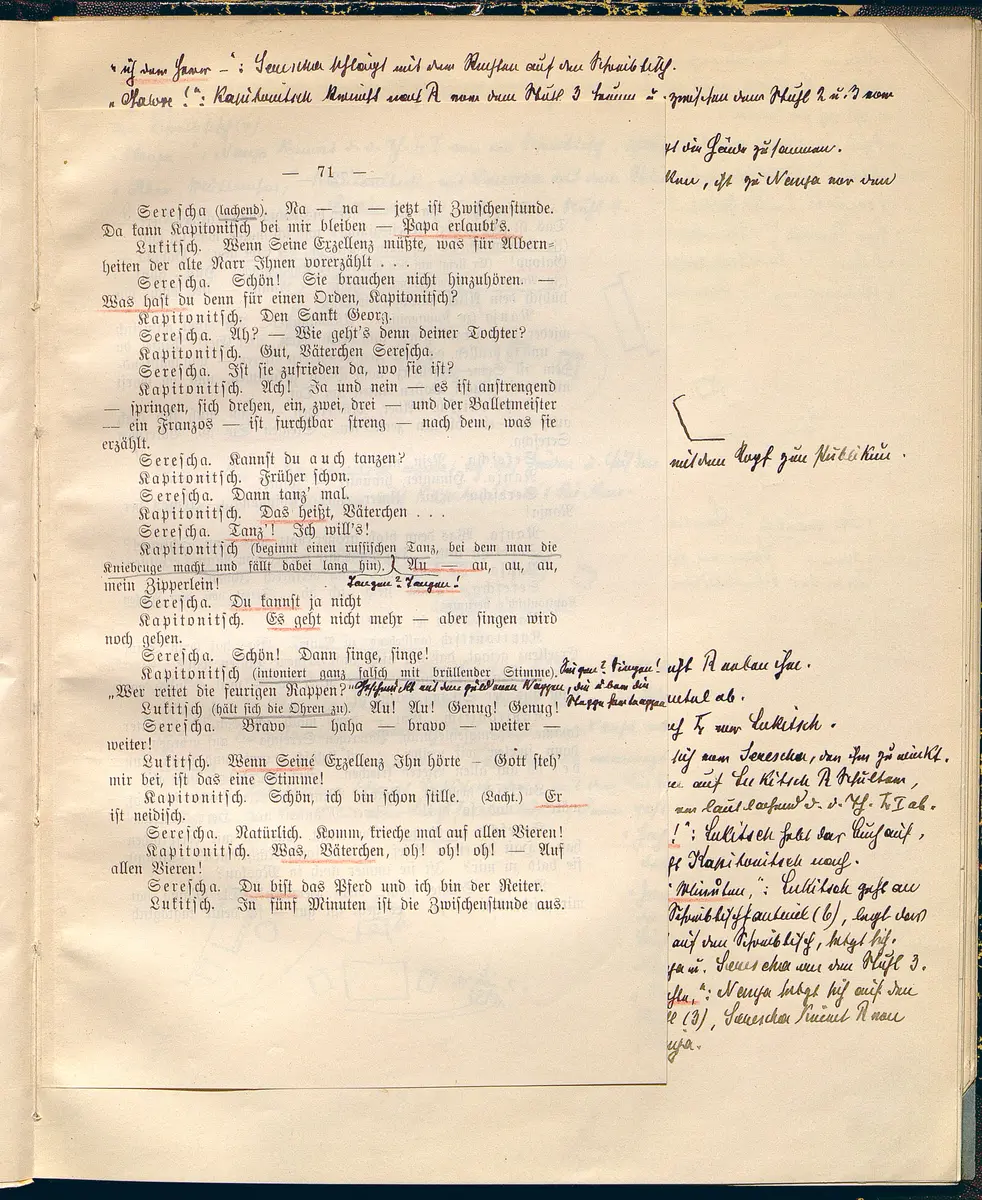 "ich dem Herrn –": Sserescha schlägt mit dem Rechten auf den Schreibtisch.
Kapitonitsch R vor dem Stuhl 3 u. zwischen dem Stuhl 2 u. 3 vor
die Hände zusammen.
, ist zu Nanja vor den
— 71 —
Serescha (lachend). Na — na — jetzt ist Zwischenstunde.
Da kann Kapitonitsch bei mir bleiben — Papa erlaubt's.
Lukitsch. Wenn Seine Exzellenz müßte, was für Albern-
heiten der alte Narr Ihnen vorerzählt . . .
Serescha. Schön! Sie brauchen nicht hinzuhören. —
Was hast du denn für einen Orden, Kapitonitsch?
Kapitonitsch. Den Sankt Georg.
Serescha. Ah? — Wie geht's denn deiner Tochter?
Kapitonitsch. Gut, Väterchen Serescha.
Serescha. Ist sie zufrieden da, wo sie ist?
Kapitonitsch. Ach! Ja und nein — es ist anstrengend
— springen, sich drehen, ein, zwei, drei — und der Balletmeister
— ein Franzos — ist furchtbar streng — nach dem, was sie
erzählt.
Serescha. Kannst du auch tanzen?
Kapitonitsch. Früher schon.
Serescha. Dann tanz' mal.
Kapitonitsch. Das heißt, Väterchen . . .
Serescha. Tanz'! Ich will's!
Kapitonitsch (beginnt einen russischen Tanz, bei dem man die
Kniebeuge macht und fällt dabei lang hin). Au — au, au, au,
mein Zipperlein! Tanzen? Tanzen!
Serescha. Du kannst ja nicht
Kapitonitsch. Es geht nicht mehr — aber singen wird
noch gehen.
Serescha. Schön! Dann singe, singe!
Kapitonitsch (intoniert ganz falsch mit brüllender Stimme). Singen? Singen!
„Wer reitet die feurigen Rappen?"
Lukitsch (hält sich die Ohren zu). Au! Au! Genug! Genug!
Serescha. Bravo — haha — bravo — weiter —
weiter!
Lukitsch. Wenn Seine Exzellenz Ihn hörte – Gott steh'
mir bei, ist das eine Stimme!
Kapitonitsch. Schön, ich bin schon stille. (Lacht.) Er
ist neidisch.
Serescha. Natürlich. Komm, krieche mal auf allen Vieren!
Kapitonitsch. Was, Väterchen, oh! oh! oh! — Auf
allen Vieren!
Serescha. Du bist das Pferd und ich bin der Reiter.
Lukitsch. In fünf Minuten ist die Zwischenstunde aus.
mit dem Kopf zum Publikum.
R neben ihn.
ab.
vor Lukitsch.
sich vor Serescha, der ihm zu winkt.
auf Lukitsch R
laut lachend d. d. Th. I ab.
!": Lukitsch hebt das Buch auf,
Kapitonitsch nach.
Minuten,": Lukitsch geht an
Schreibtischfauteuil (6), legt das
auf den Schreibtisch, setzt sich.
u. Serescha vor dem Stuhl 3.
": Nanja setzt sich auf den
(3), Serescha kniet R von